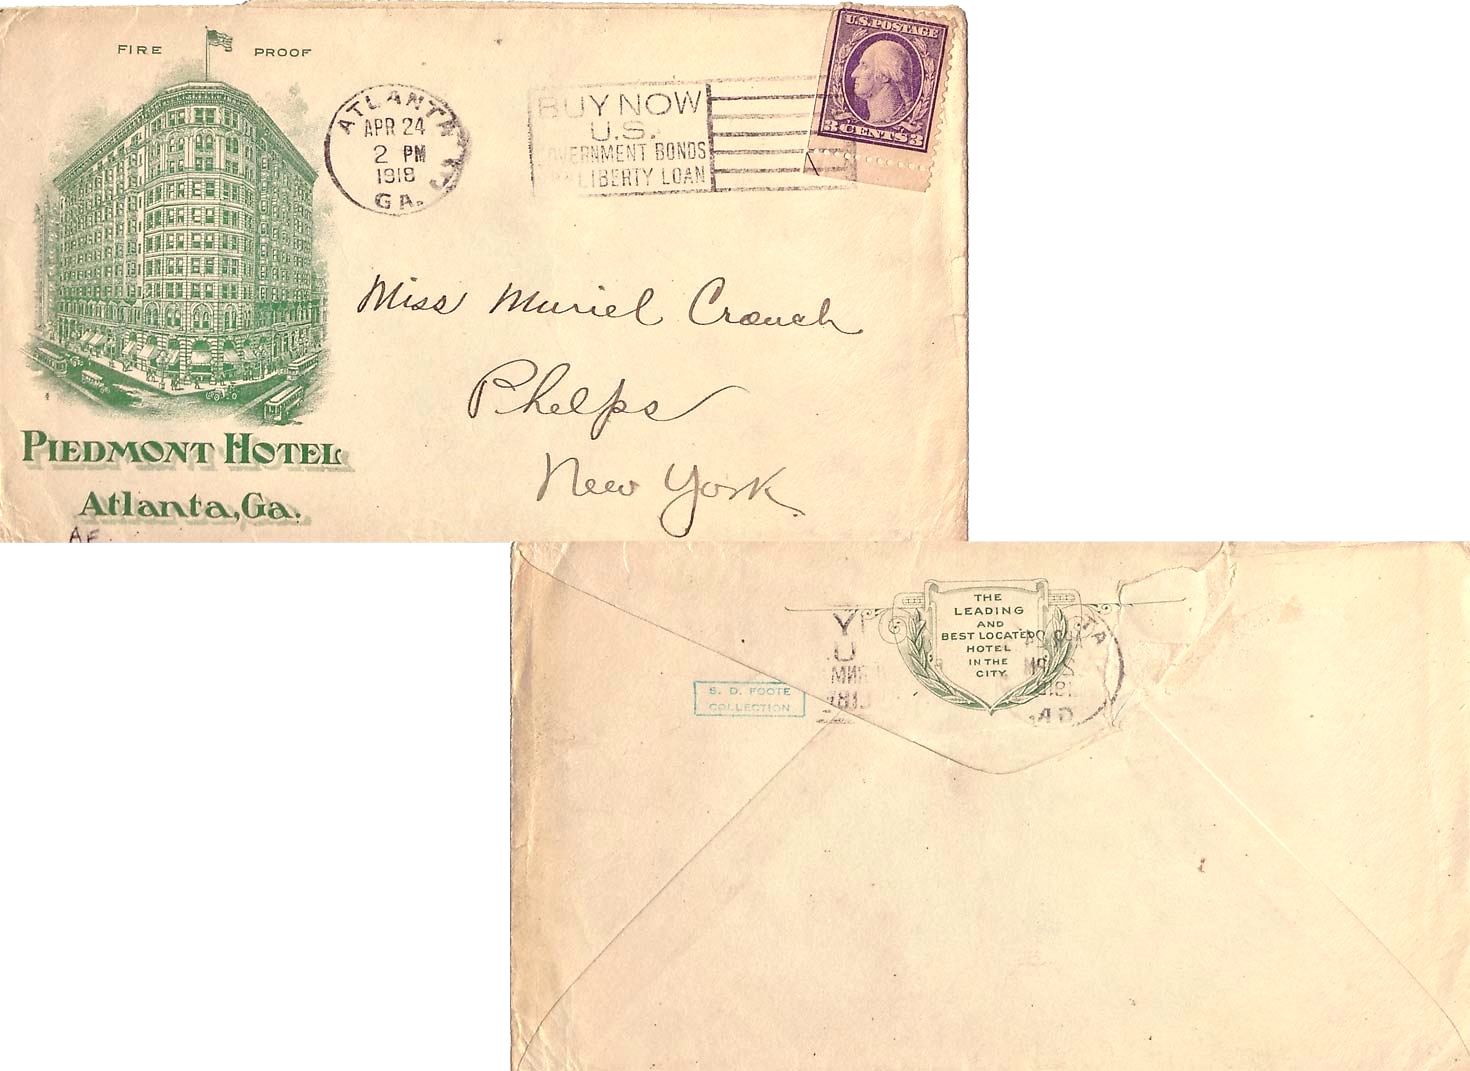 FIRE PROOF
ATLANTA
APR 24
2 PM
1918
GA.
BUY NOW
U.S.
GOVERNMENT BONDS
LIBERTY LOAN
U.S. POSTAGE
3 CENTS 3
Miss Muriel Crouch
Phelps
New York
PIEDMONT HOTEL
Atlanta, Ga.
THE
LEADING
AND
BEST LOCATED
HOTEL
IN THE
CITY.
S. D. FOOTE
COLLECTION